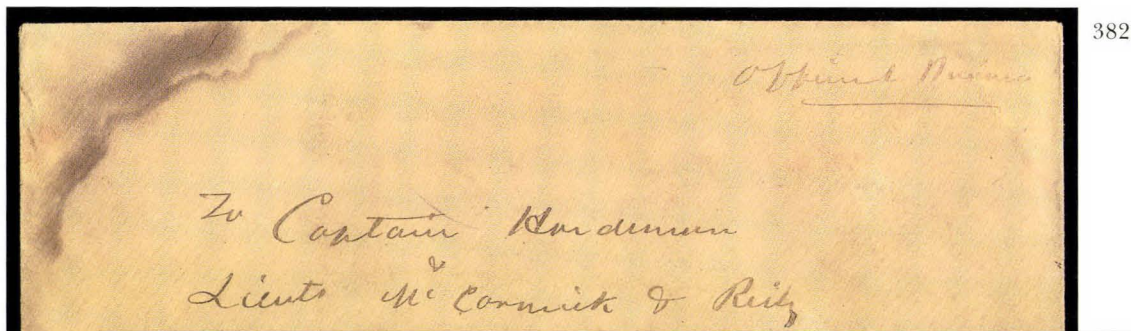 382
Official Business
To Captain Hardeman
&
Lieuts Mc Cormick & Reily